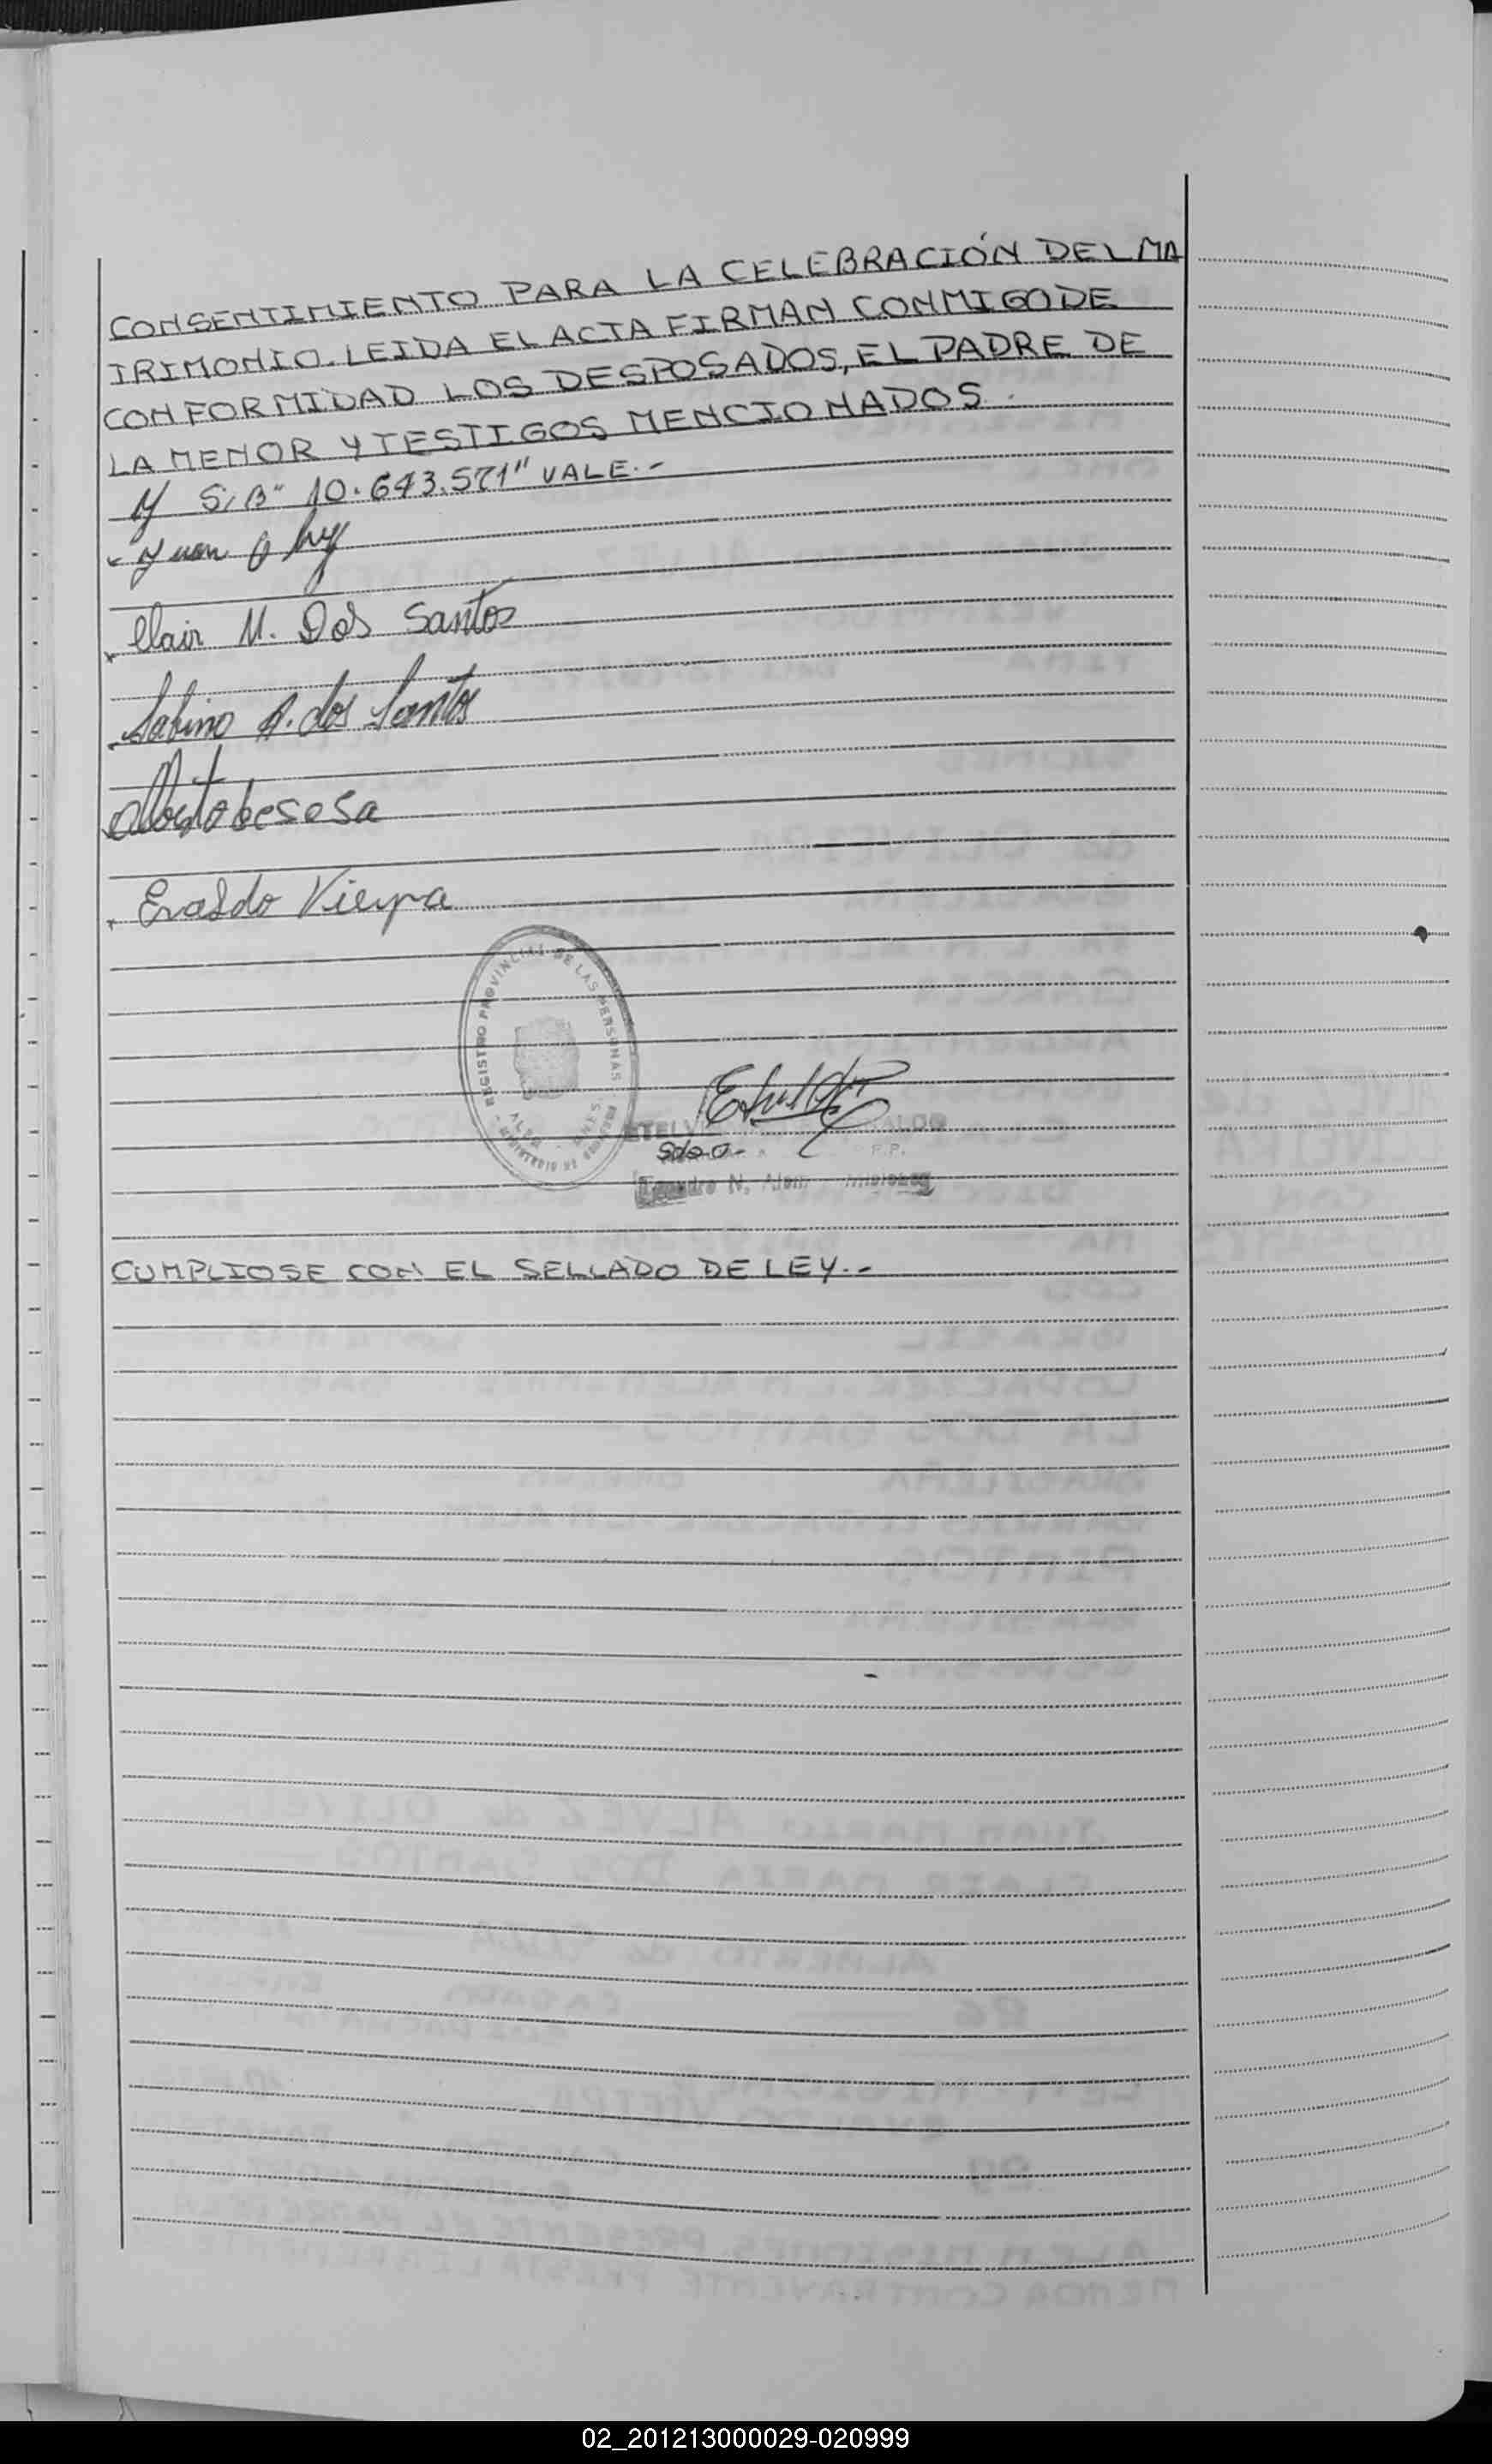 CONSENTIMIENTO PARA LA CELEBRACIÓN DEL MA
TRIMONIO. LEIDA EL ACTA FIRMAN CONMIGO DE
CONFORMIDAD LOS DESPOSADOS, EL PADRE DE
LA MENOR Y TESTIGOS MENCIONADOS.
S/B" 10.643.571" VALE.-
Juan
Clair M. Dos Santos
Sabino A. dos Santos
Eraldo Vieyra
REGISTRO PROVINCIAL DE LAS PERSONAS
ALDO
F.P.
Leandro N. Alem
CUMPLIOSE CON EL SELLADO DE LEY.-
02_201213000029-020999